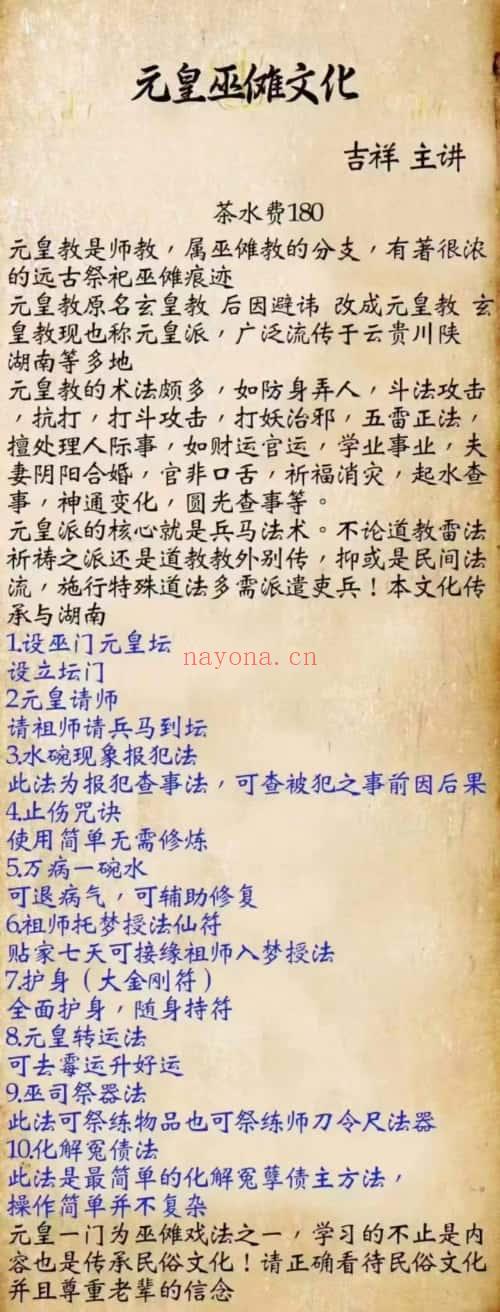 元皇巫傩文化
吉祥 主讲
茶水费180
元皇教是师教，属巫傩教的分支，有著很浓
的远古祭祀巫傩痕迹
元皇教原名玄皇教 后因避讳 改成元皇教 玄
皇教现也称元皇派，广泛流传于云贵川陕
湖南等多地
元皇教的术法颇多，如防身弄人，斗法攻击
，抗打，打斗攻击，打妖治邪，五雷正法，
擅处理人际事，如财运官运，学业事业，夫
妻阴阳合婚，官非口舌，祈福消灾，起水查
事，神通变化，圆光查事等。
元皇派的核心就是兵马法术。不论道教雷法
祈祷之派还是道教教外别传，抑或是民间法
流，施行特殊道法多需派遣吏兵！本文化传
承与湖南
1.设巫门元皇坛
设立坛门
nayona.cn
2元皇请师
请祖师请兵马到坛
3.水碗现象报犯法
此法为报犯查事法，可查被犯之事前因后果
4.止伤咒诀
使用简单无需修炼
5.万病一碗水
可退病气，可辅助修复
6.祖师托梦授法仙符
贴家七天可接缘祖师入梦授法
7.护身（大金刚符）
全面护身，随身持符
8.元皇转运法
可去霉运升好运
9.巫司祭器法
此法可祭练物品也可祭练师刀令尺法器
10.化解冤债法
此法是最简单的化解冤孽债主方法，
操作简单并不复杂
元皇一门为巫傩戏法之一，学习的不止是内
容也是传承民俗文化！请正确看待民俗文化
并且尊重老辈的信念